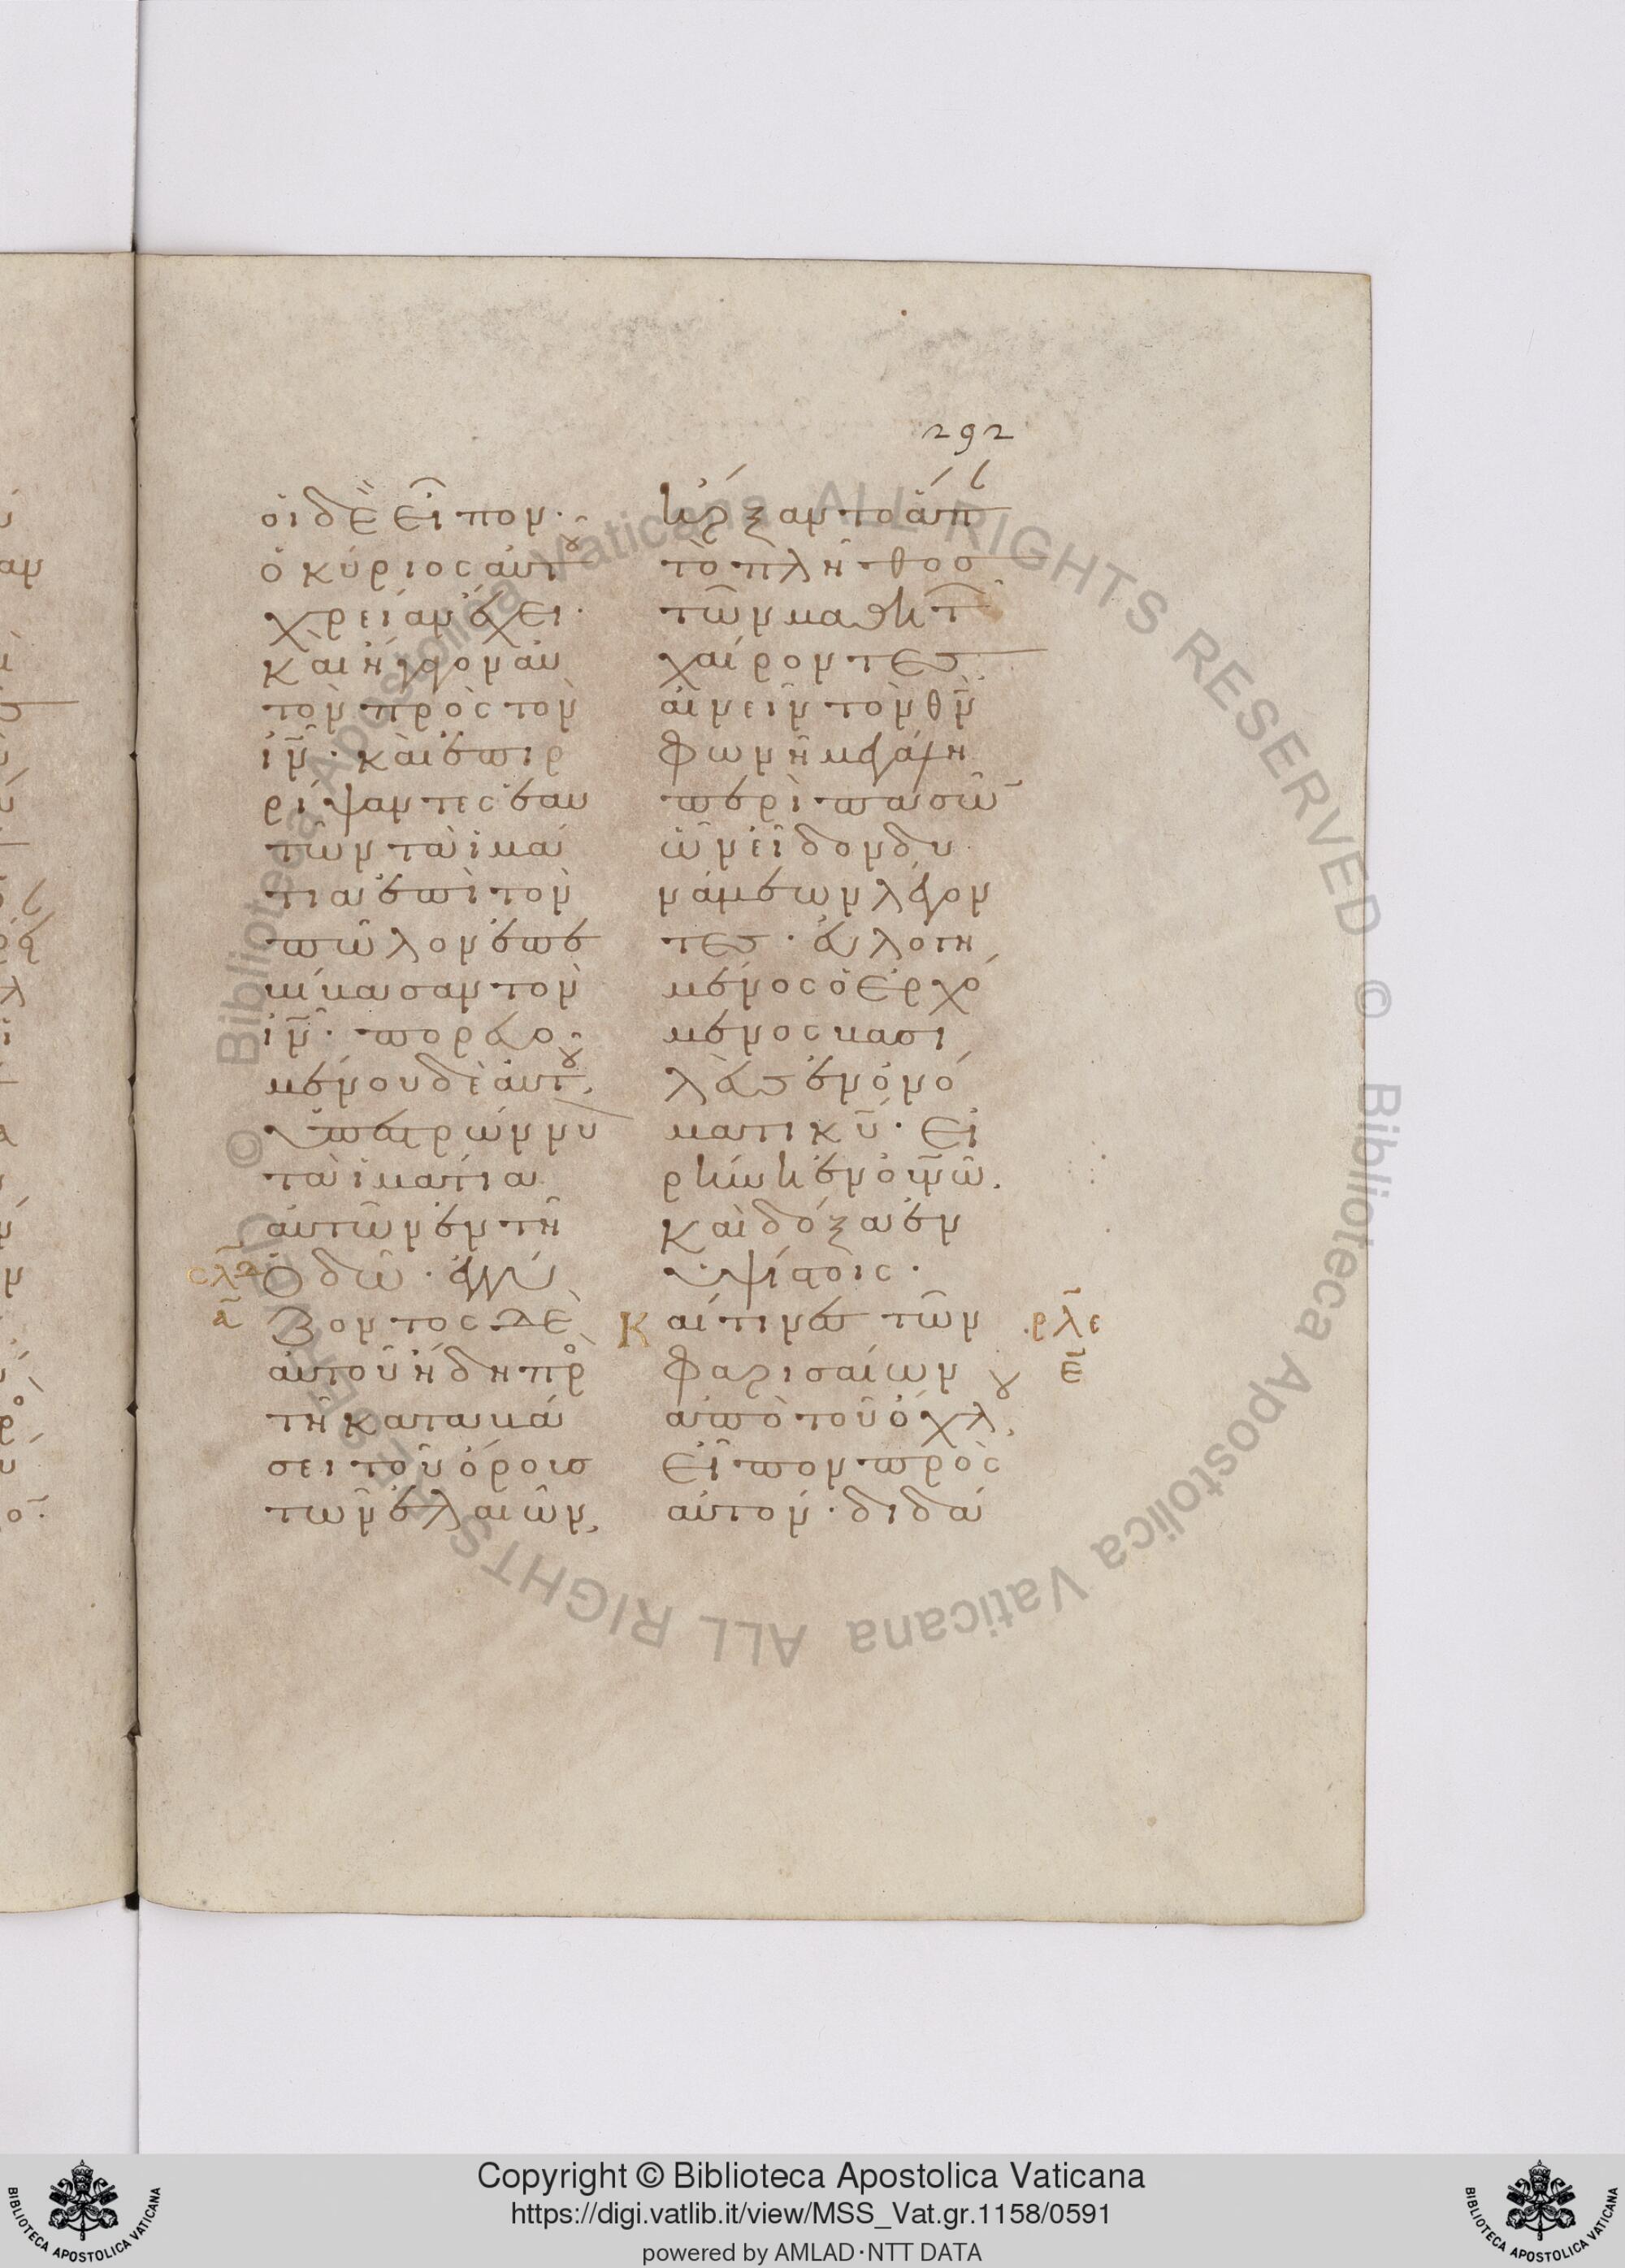 292
οἱ δὲ εἶπον·
ὁ κύριος αὐτου
χρείαν ἔχει·
καὶ ἤγαγον αὐ
τὸν πρὸς τὸν
ιν· καὶ ἐπιρ
ρίψαντες ἑαυ
τῶν τὰ ἱμά
τια ἐπὶ τὸν
πῶλον ἐπε
βίβασαν τὸν
ιν· πορευο
μένου δὲ αὐτου,
ὑπεστρώννυ
τὰ ἱμάτια
αὐτῶν ἐν τῆ
σλδ ὁδῶ· ἐγγί
α ζοντος δὲ
αὐτοῦ ἤδη προ
τῆ καταβά
σει τοῦ ὄρους
τῶν ἐλαιῶν,
ἤρξαντο ἅπαν
τὸ πλῆθος
τῶν μαθητῶν
χαίροντες
αἰνεῖν τὸν θν
φωνῆ μεγάλη
περὶ πασῶν
ὧν εἶδον δυ
νάμεων λέγον
τες· εὐλογη
μένος ὁ ἐρχό
μενος βασι
λεὺς ἐν ὀνό
ματι κυ· εἰ
ρήνη ἐν οὐνῶ,
καὶ δόξα ἐν
ὑψίστοις·
Καί τινες τῶν ρλε
φαρισαίων ε
ἀπὸ τοῦ ὄχλου,
εἶπον πρὸς
αὐτόν· διδά
Copyright © Biblioteca Apostolica Vaticana
https://digi.vatlib.it/view/MSS_Vat.gr.1158/0591
powered by AMLAD·NTT DATA
BIBLIOTECA APOSTOLICA VATICANA
BIBLIOTECA APOSTOLICA VATICANA
© Biblioteca Apostolica Vaticana ALL RIGHTS RESERVED © Biblioteca Apostolica Vaticana ALL RIGHTS RESERVED